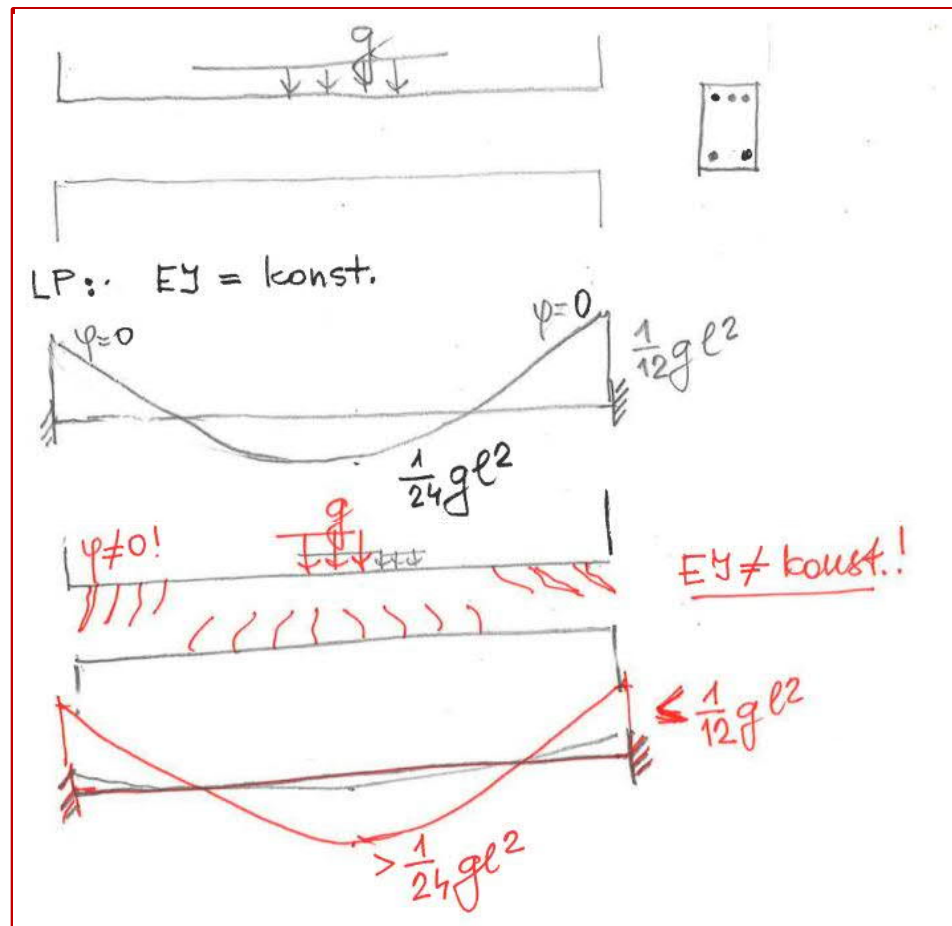 g
LP: EJ = konst.
φ=0 φ=0
1/12 gl²
1/24 gl²
g
φ≠0!
EJ ≠ konst.!
≤ 1/12 gl²
> 1/24 gl²